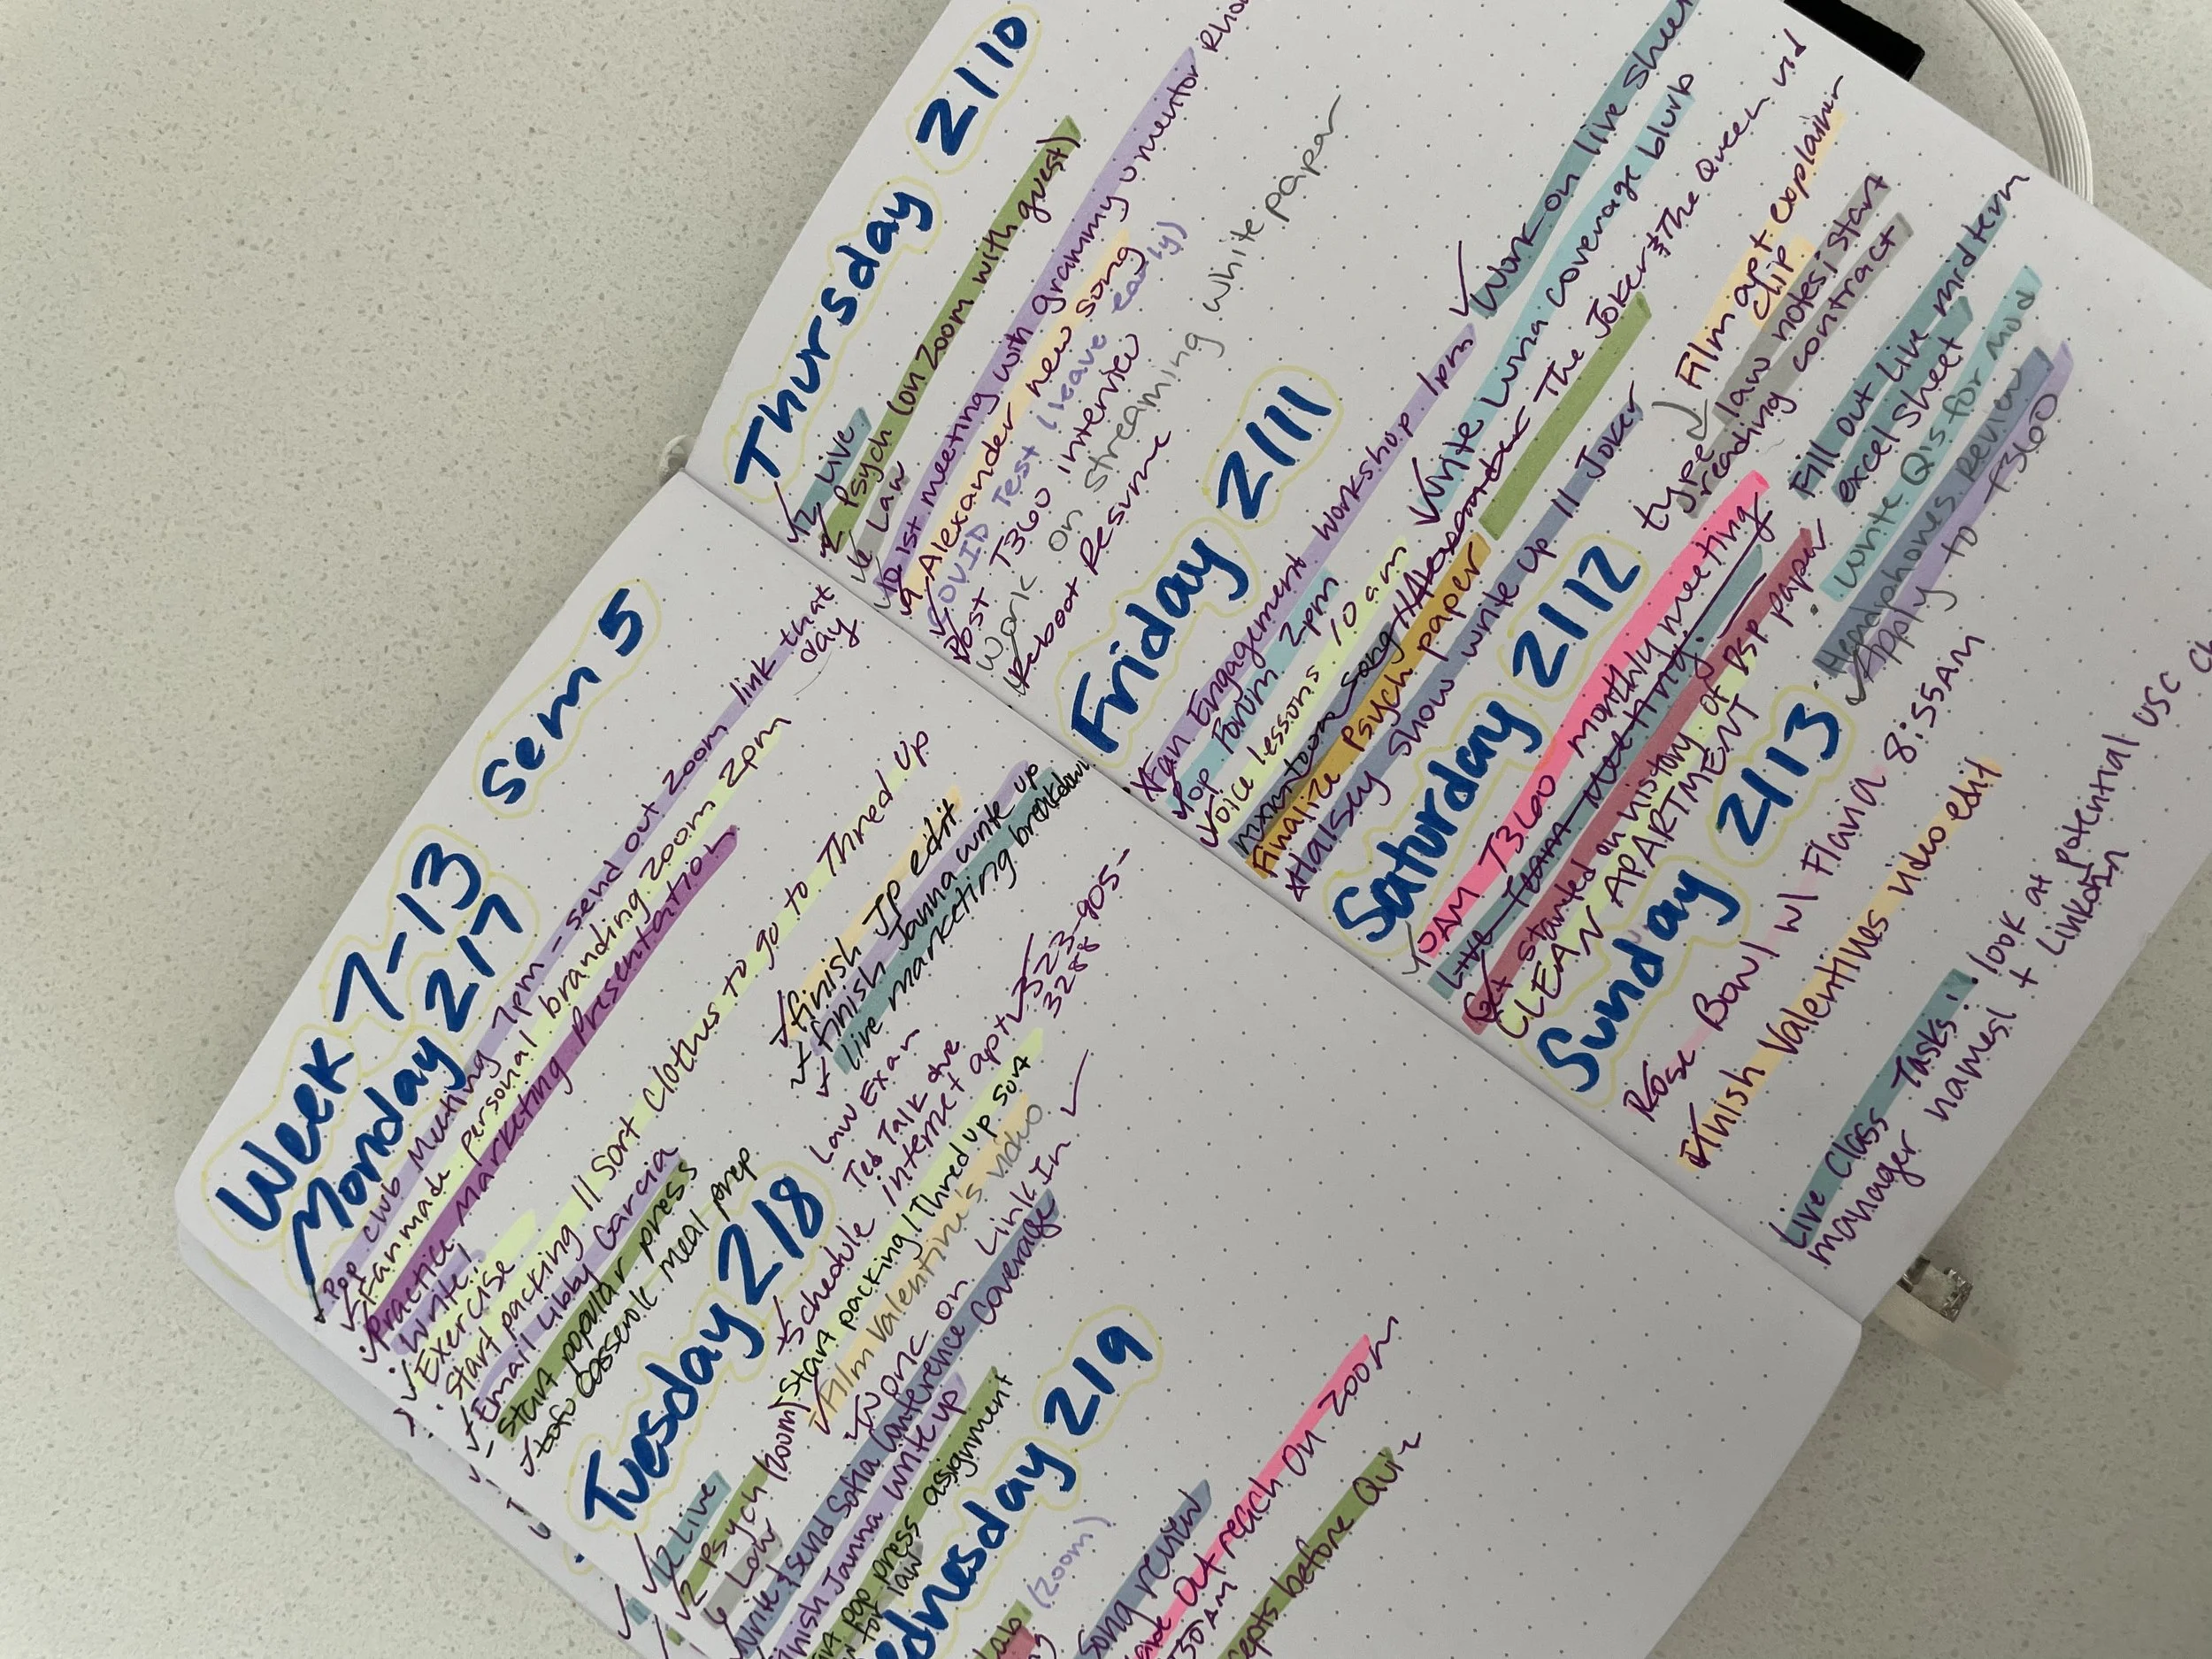 Week 7-13
sem 5
Monday 2/7
Pop club Meeting 7pm - send out zoom link that
day
Fanmade personal branding zoom 2pm
Practice Marketing Presentation
Write!
Exercise
Start packing || Sort clothes to go to Thred Up
Email Libby Garcia
start popular press
tofu casserole meal prep
finish JP edit
finish Janna write up
Live marketing breakdown
Tuesday 2/8
Law Exam
Ted Talk due
Schedule internet apt 323-905-
3288
Start packing / Thred up sort
Film Valentine's video
Work on Link In
12 Live
2 Psych (zoom)
6 Law
Write & send Sofia Conference Coverage
finish Janna write up
pop press assignment
for law
ednesday 2/9
lab (zoom)
Song review
Out reach On zoom
30 AM
cepts before Quiz
Thursday 2/10
12 Live
2 Psych (on zoom with guest)
6 Law
1st meeting with grammy u mentor
Alexander new song
COVID Test (leave early)
Post T360 interview
Work on streaming white paper
Reboot Resume
Friday 2/11
Fan Engagement Workshop 1pm
Pop Forum 2pm
Voice lessons 10 am
Finalize Psych paper
Halsey Show write up || Joker
Work on live sheet
Write Luna coverage blurb
The Joker & The Queen vid
Saturday 2/12
10AM T360 monthly meeting
Live Team Meeting
Get started on history of BSP paper
CLEAN APARTMENT
Film apt explainer
clip
type law notes / start
reading contract
Fill out Live midterm
excel sheet
write Q's for mod
Headphones Review
Apply to T360
Sunday 2/13
Rose Bowl w/ Flavia 8:55AM
Finish Valentines video edit
Live Class Tasks: look at potential USC
manager names! + Linkdin